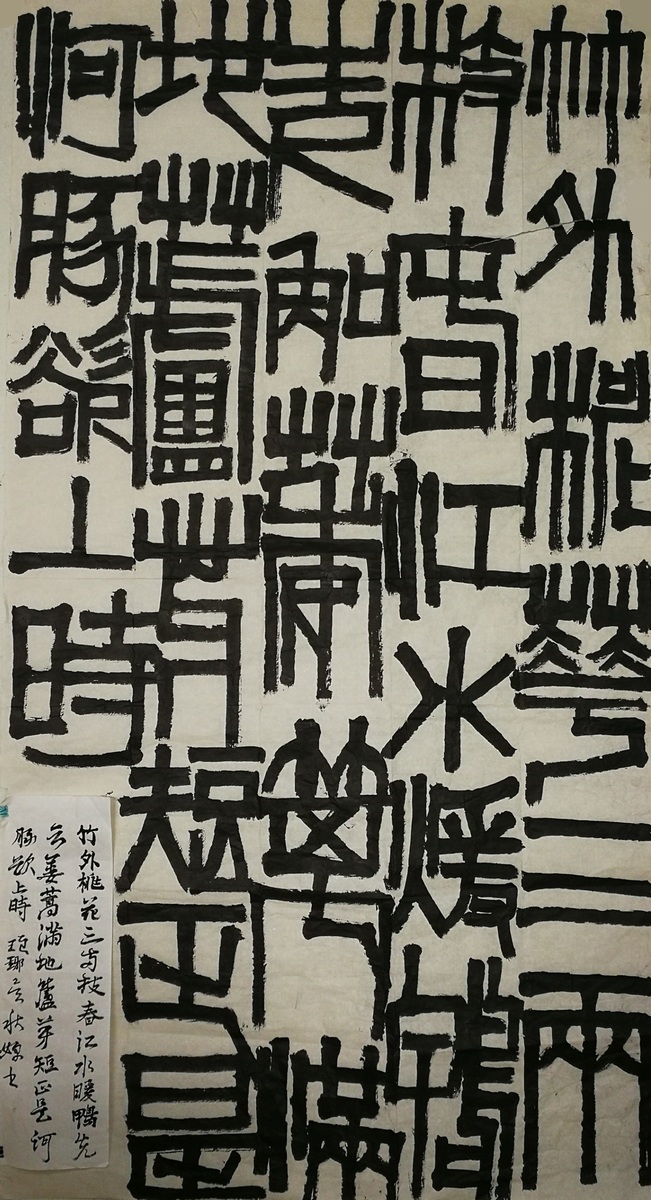 竹外桃花三兩
枝春江水暖鴨
先知蔞蒿滿
地蘆芽短正是
河豚欲上時
竹外桃花三兩枝春江水暖鴨先
知蔞蒿滿地蘆芽短正是河
豚欲上時